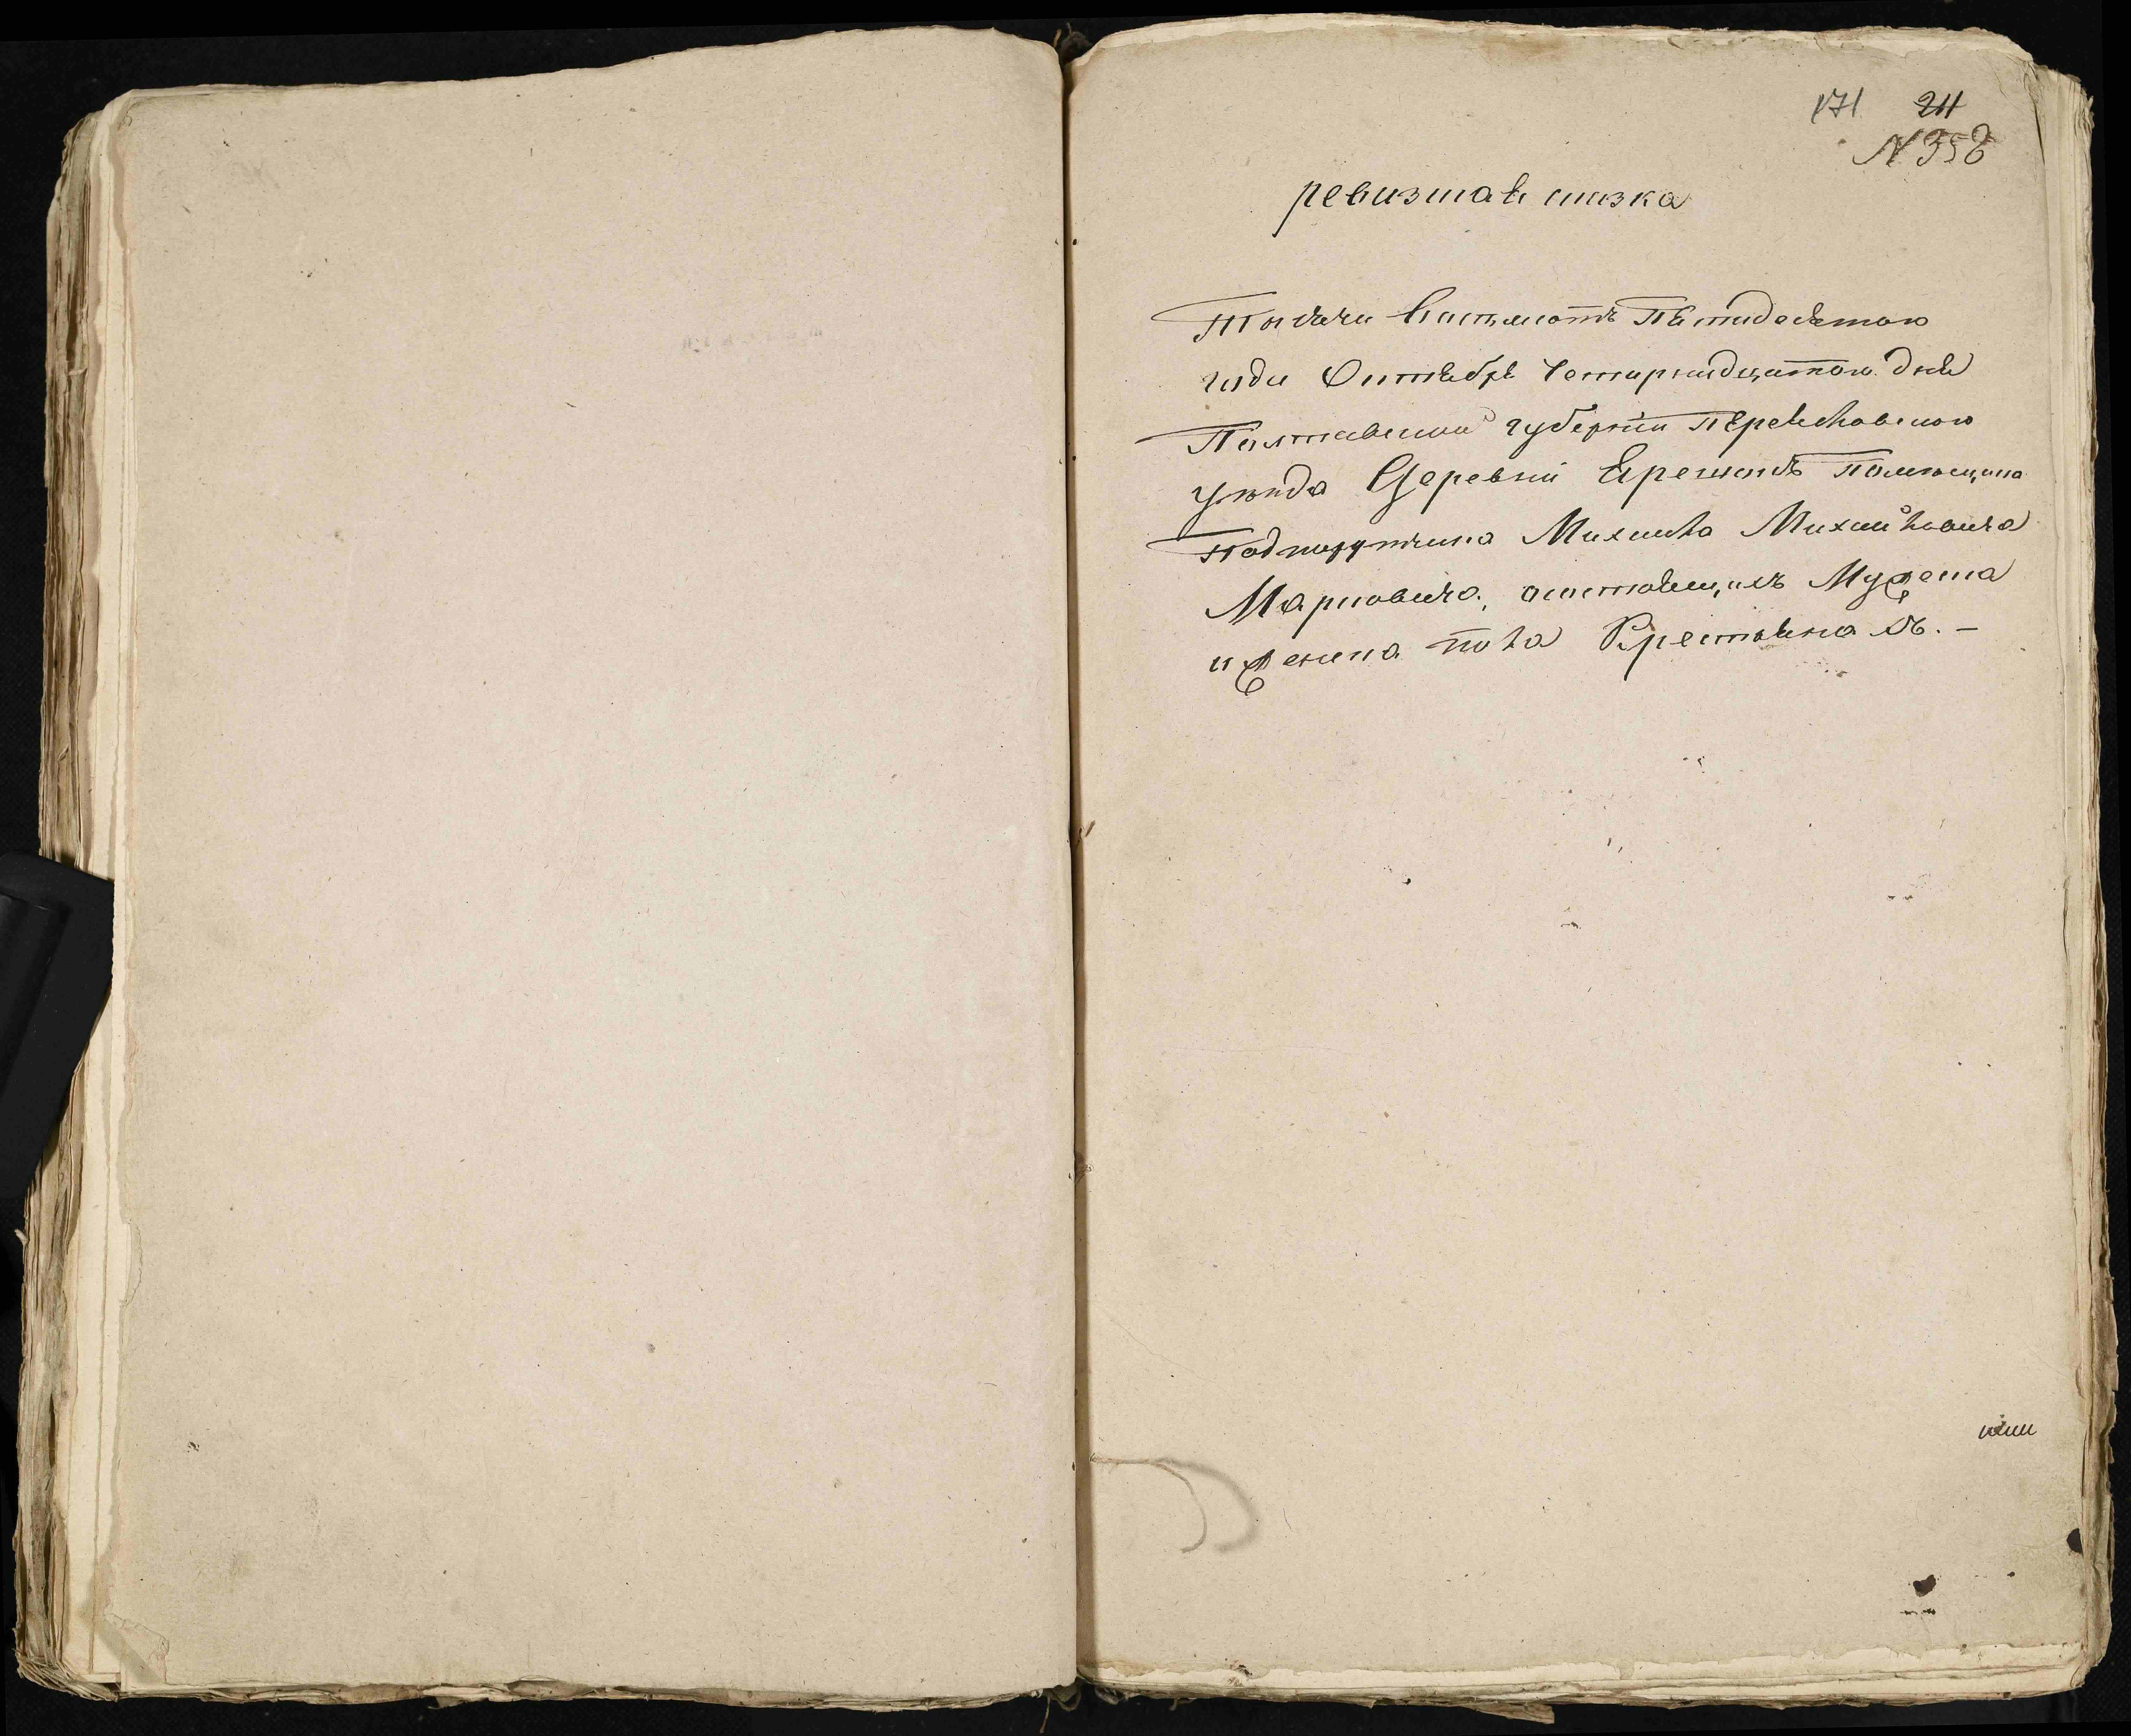 171 211
№ 358
ревизская сказка
Тысяча Восьмсотъ Пятидесятого
года Октября Четирнадцатого дня
Полтавской губернии Переясловского
уезда Деревни помещика
Подпорутчика Михаила Михайловича
Марковича, состоящихъ Мужеска
и женска пола Крестьянахъ. –